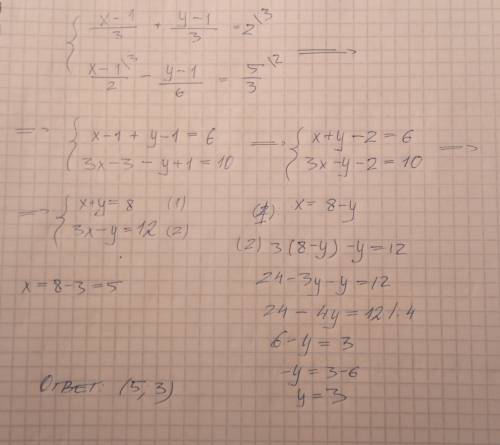 { (x-1)/3 + (y-1)/3 = 2 \3
{ (x-1)/2 \3 - (y-1)/6 = 5/3 \2 ⟹
⟹ { x-1 + y-1 = 6 ⟹ { x+y-2 = 6
{ 3x-3 - y+1 = 10 { 3x-y-2 = 10 ⟹
⟹ { x+y = 8 (1)
{ 3x-y = 12 (2)
x = 8-3 = 5
(1) x = 8-y
(2) 3(8-y)-y = 12
24-3y-y = 12
24 - 4y = 12 /:4
6-y = 3
-y = 3-6
y = 3
Ответ: (5, 3)